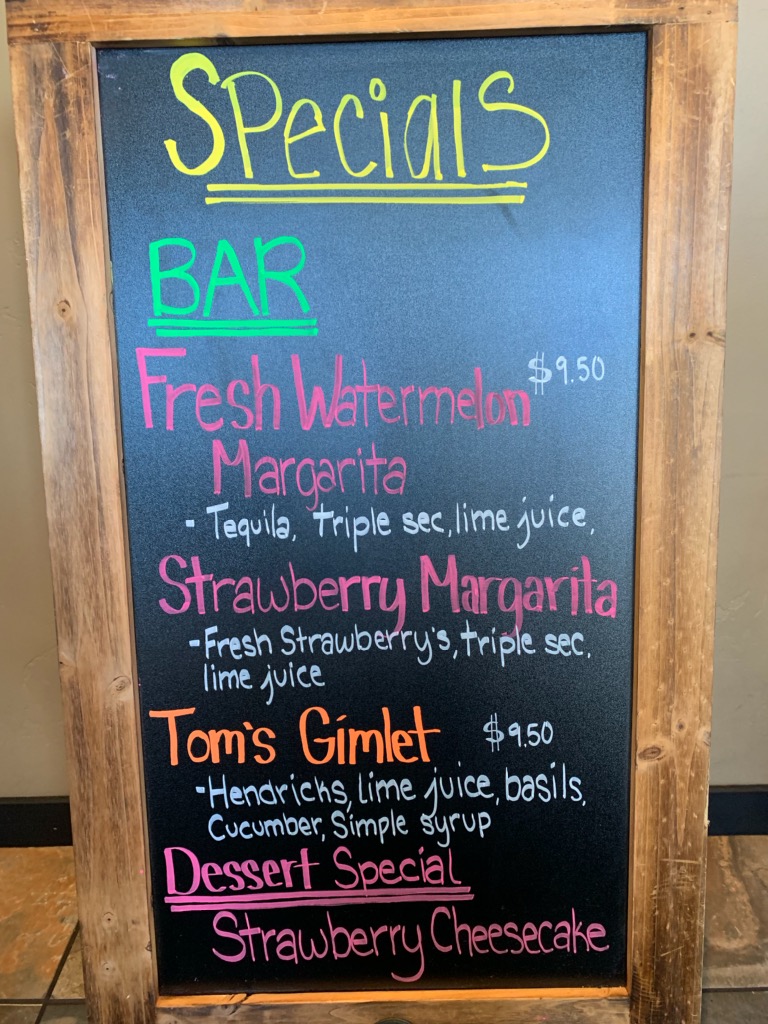 Specials
BAR
Fresh Watermelon $9.50
Margarita
- Tequila, triple sec, lime juice,
Strawberry Margarita
- Fresh Strawberry's, triple sec,
lime juice
Tom's Gimlet $9.50
- Hendricks, lime juice, basils,
Cucumber, Simple syrup
Dessert Special
Strawberry Cheesecake